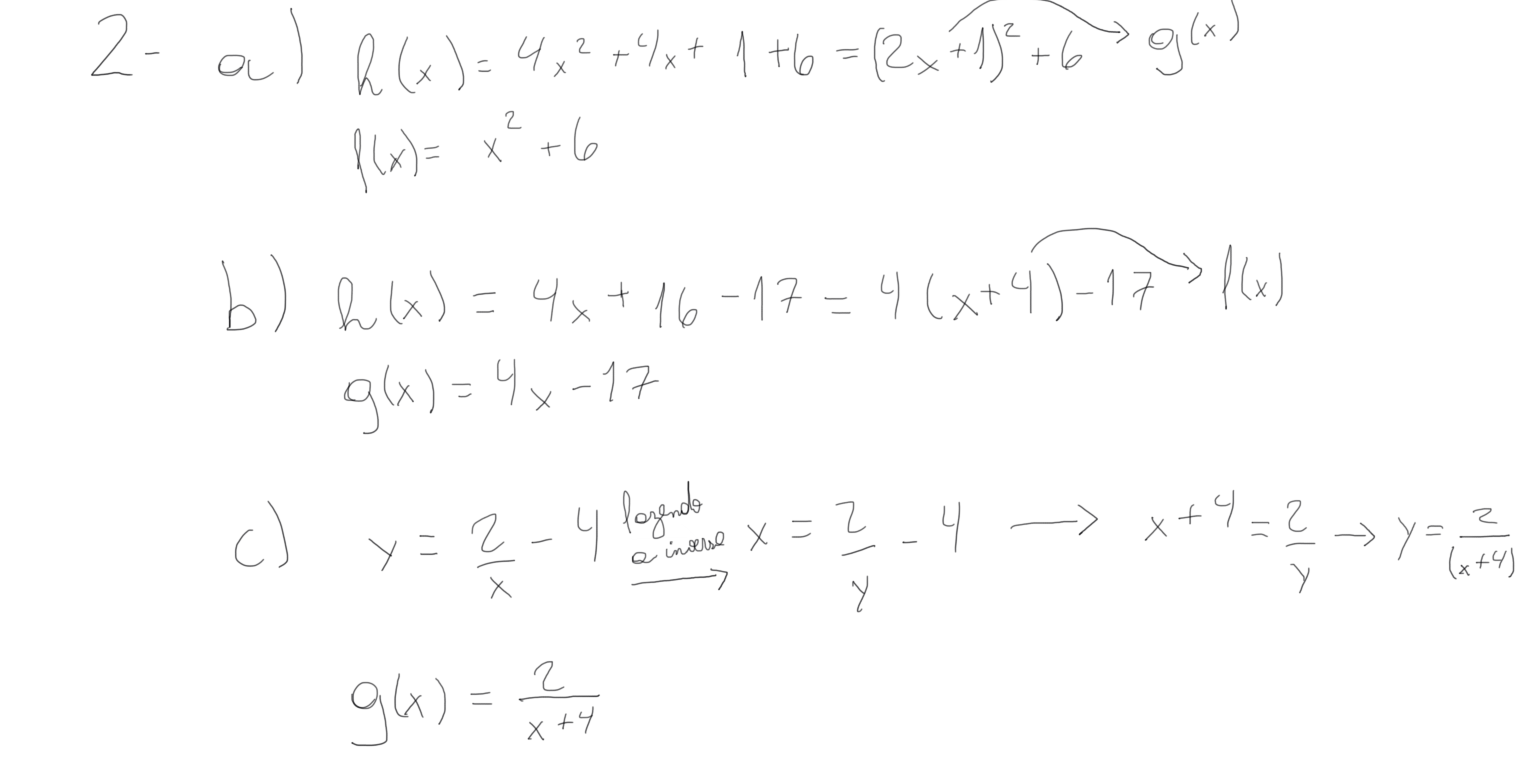 2- a) h(x) = 4x² + 4x + 1 + 6 = (2x + 1)² + 6 → g(x)
f(x) = x² + 6
b) h(x) = 4x + 16 - 17 = 4(x + 4) - 17 → f(x)
g(x) = 4x - 17
c) y = 2/x - 4 fazendo a inversa → x = 2/y - 4 → x + 4 = 2/y → y = 2/(x+4)
g(x) = 2/x+4